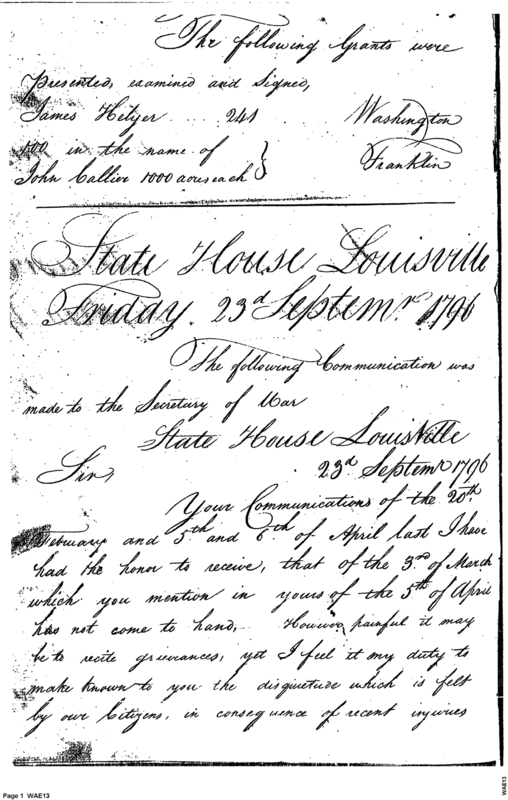 The following Grants were
presented, examined and signed,
James Hetzer . . . 241 Washington
100 in the name of } Franklin
John Collier 1000 acres each
State House Louisville
Friday. 23d Septemr 1796
The following Communication was
made to the Secretary of War
State House Louisville
23d Septemr 1796
Sir,
Your Communications of the 20th
February and 5th and 6th of April last I have
had the honor to receive, that of the 3rd of March
which you mention in yours of the 5th of April
has not come to hand, However painful it may
be to recite grievances, yet I feel it my duty to
make known to you the disquietude which is felt
by our Citizens, in consequence of recent injuries
Page 1 WAE13
WAE13